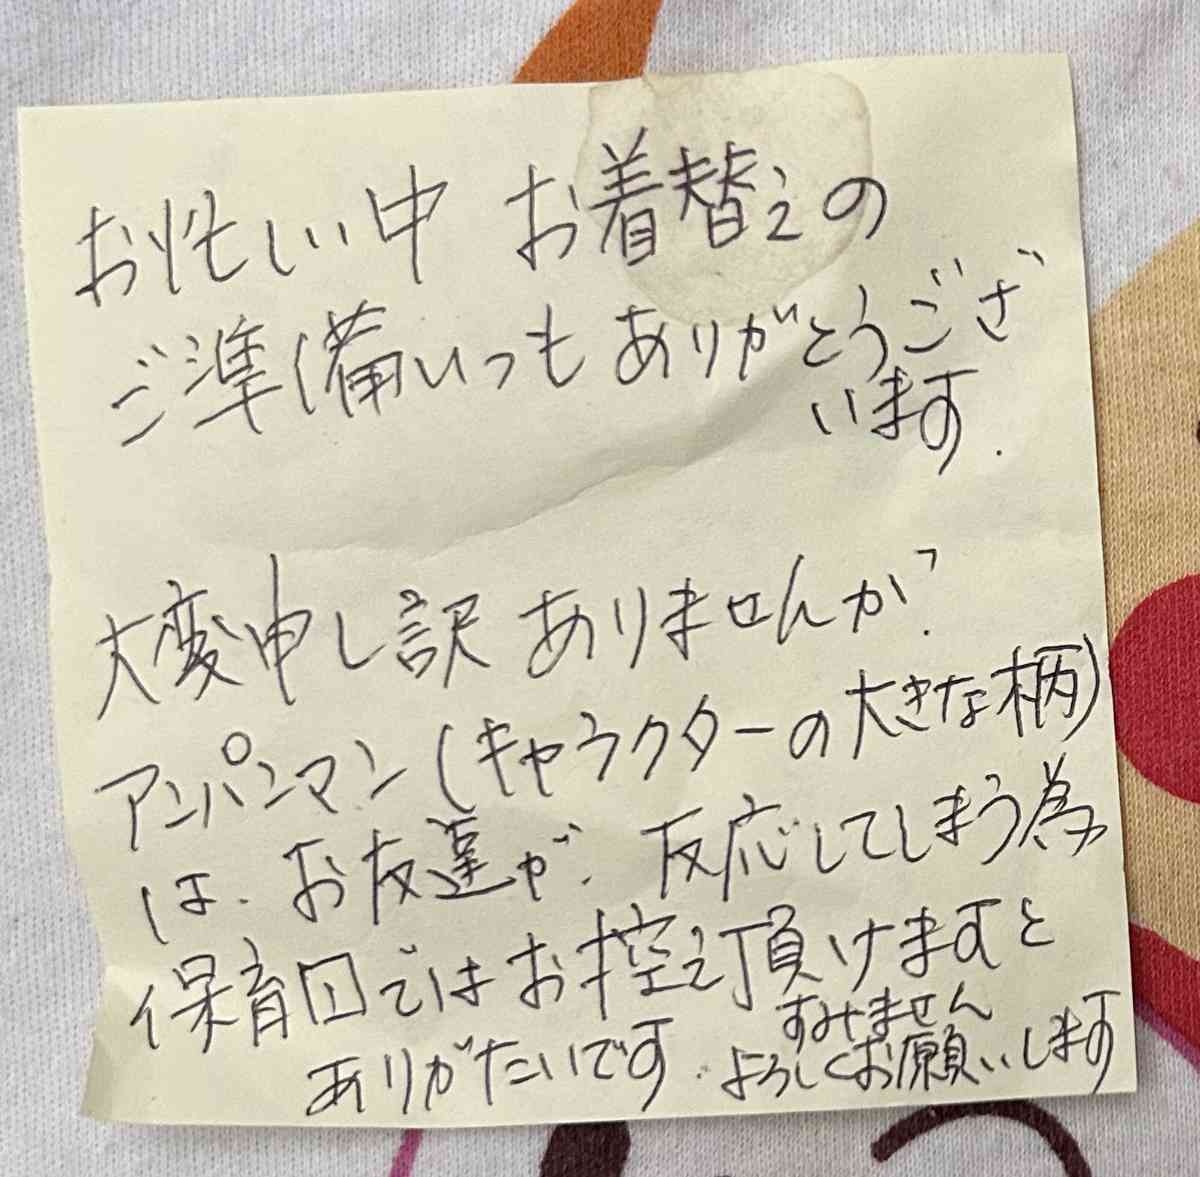 お忙しい中 お着替えの
ご準備いつもありがとうござ
います.
大変申し訳ありませんが、
アンパンマン(キャラクターの大きな柄)
は、お友達が、反応してしまう為
保育園ではお控え頂けますと
ありがたいです.
すみません
よろしくお願いします